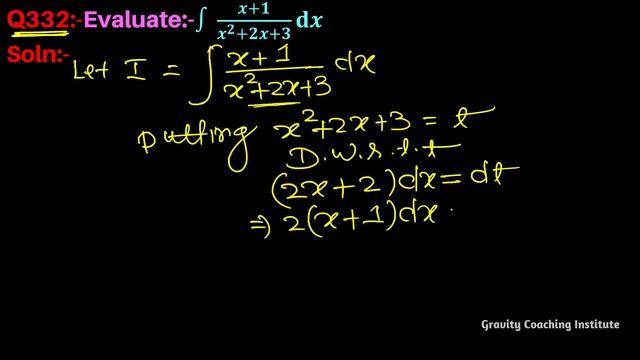 Q332:-Evaluate:-∫ x+1/x²+2x+3 dx
Soln:-
Let I = ∫ x+1/x²+2x+3 dx
Putting x²+2x+3 = t
D.w.r.t.t
(2x+2)dx = dt
⇒ 2(x+1)dx
Gravity Coaching Institute